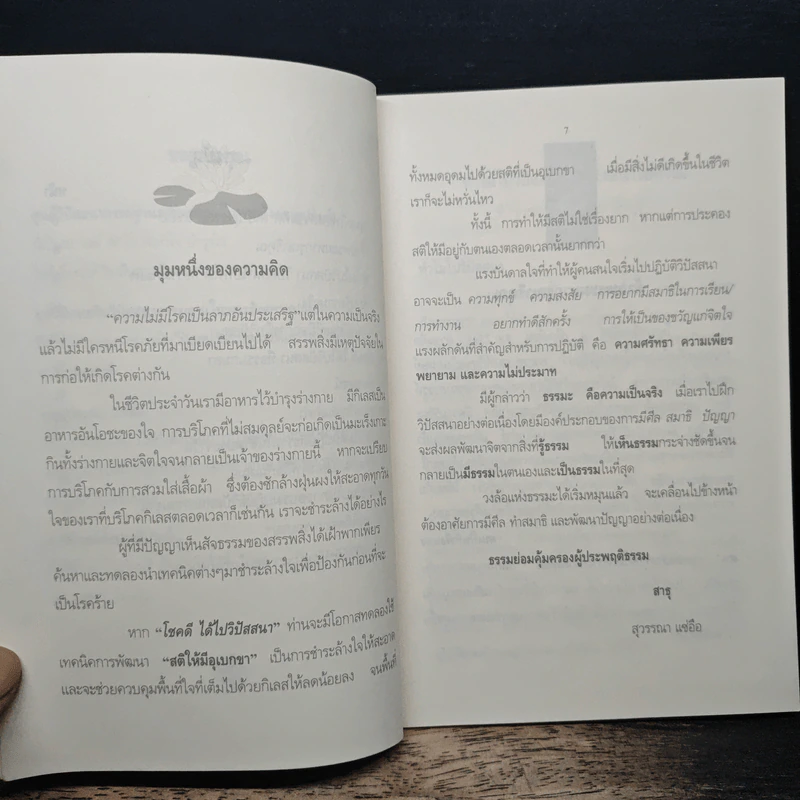 มุมหนึ่งของความคิด
“ความไม่มีโรคเป็นลาภอันประเสริฐ”แต่ในความเป็นจริง
แล้วไม่มีใครหนีโรคภัยที่มาเบียดเบียนไปได้ สรรพสิ่งมีเหตุปัจจัยใน
การก่อให้เกิดโรคต่างกัน
ในชีวิตประจำวันเรามีอาหารไว้บำรุงร่างกาย มีกิเลสเป็น
อาหารอันโอชะของใจ การบริโภคที่ไม่สมดุลย์จะก่อเกิดเป็นมะเร็งเกาะ
กินทั้งร่างกายและจิตใจจนกลายเป็นเจ้าของร่างกายนี้ หากจะเปรียบ
การบริโภคกับการสวมใส่เสื้อผ้า ซึ่งต้องซักล้างฝุ่นผงให้สะอาดทุกวัน
ใจของเราที่บริโภคกิเลสตลอดเวลาก็เช่นกัน เราจะชำระล้างได้อย่างไร
ผู้ที่มีปัญญาเห็นสัจธรรมของสรรพสิ่งได้เฝ้าพากเพียร
ค้นหาและทดลองนำเทคนิคต่างๆมาชำระล้างใจเพื่อป้องกันก่อนที่จะ
เป็นโรคร้าย
หาก “โชคดี ได้ไปวิปัสสนา” ท่านจะมีโอกาสทดลองใช้
เทคนิคการพัฒนา “สติให้มีอุเบกขา” เป็นการชำระล้างใจให้สะอาด
และจะช่วยควบคุมพื้นที่ใจที่เต็มไปด้วยกิเลสให้ลดน้อยลง จนพื้นที่
7
ทั้งหมดอุดมไปด้วยสติที่เป็นอุเบกขา เมื่อมีสิ่งไม่ดีเกิดขึ้นในชีวิต
เราก็จะไม่หวั่นไหว
ทั้งนี้ การทำให้มีสติไม่ใช่เรื่องยาก หากแต่การประคอง
สติให้มีอยู่กับตนเองตลอดเวลานั้นยากกว่า
แรงบันดาลใจที่ทำให้ผู้คนสนใจเริ่มไปปฏิบัติวิปัสสนา
อาจจะเป็น ความทุกข์ ความสงสัย การอยากมีสมาธิในการเรียน/
การทำงาน อยากทำดีสักครั้ง การให้เป็นของขวัญแก่จิตใจ
แรงผลักดันที่สำคัญสำหรับการปฏิบัติ คือ ความศรัทธา ความเพียร
พยายาม และความไม่ประมาท
มีผู้กล่าวว่า ธรรมะ คือความเป็นจริง เมื่อเราไปฝึก
วิปัสสนาอย่างต่อเนื่องโดยมีองค์ประกอบของการมีศีล สมาธิ ปัญญา
จะส่งผลพัฒนาจิตจากสิ่งที่รู้ธรรม ให้เห็นธรรมกระจ่างชัดขึ้นจน
กลายเป็นมีธรรมในตนเองและเป็นธรรมในที่สุด
วงล้อแห่งธรรมะได้เริ่มหมุนแล้ว จะเคลื่อนไปข้างหน้า
ต้องอาศัยการมีศีล ทำสมาธิ และพัฒนาปัญญาอย่างต่อเนื่อง
ธรรมย่อมคุ้มครองผู้ประพฤติธรรม
สาธุ
สุวรรณา แซ่อือ